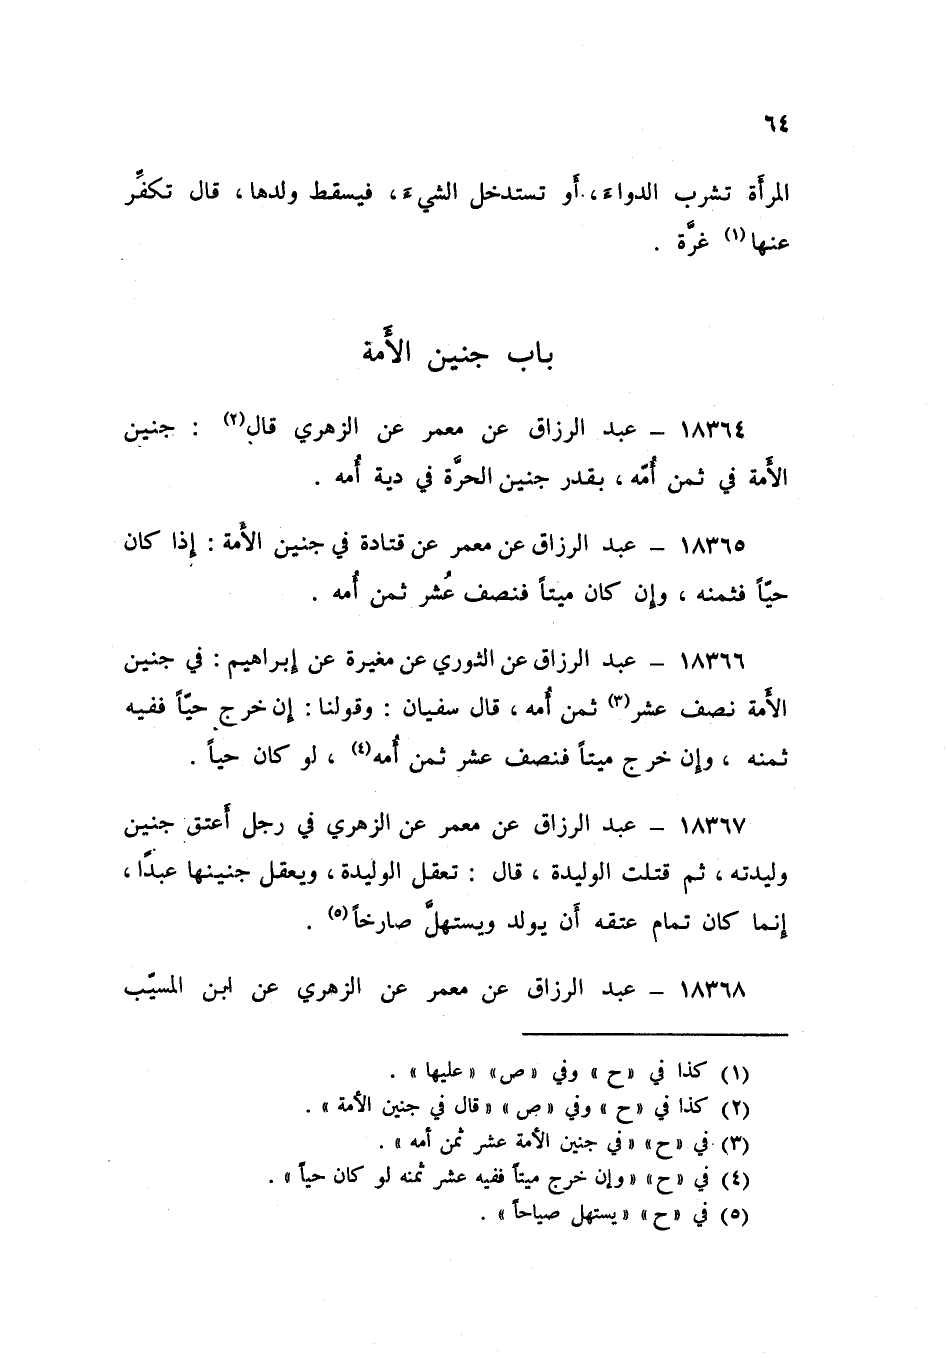 ٦٤
المرأَة تشرب الدواءَ، أَو تستدخل الشيءَ، فيسقط ولدها، قال تكفِّر
عنها(١) غرَّة .
باب جنين الأَمة
١٨٣٦٤ – عبد الرزاق عن معمر عن الزهري قال(٢) : جنين
الأَمة في ثمن أُمّه ، بقدر جنين الحرَّة في دية أُمه .
١٨٣٦٥ – عبد الرزاق عن معمر عن قتادة في جنين الأَمة : إِذا كان
حيّاً فثمنه ، وإِن كان ميتاً فنصف عُشر ثمن أُمه .
١٨٣٦٦ – عبد الرزاق عن الثوري عن مغيرة عن إِبراهيم : في جنين
الأَمة نصف عشر(٣) ثمن أُمه ، قال سفيان : وقولنا : إِن خرج حيّاً ففيه
ثمنه ، وإِن خرج ميتاً فنصف عشر ثمن أُمه(٤) ، لو كان حياً .
١٨٣٦٧ – عبد الرزاق عن معمر عن الزهري في رجل أَعتق جنين
وليدته ، ثم قتلت الوليدة ، قال : تعقل الوليدة ، ويعقل جنينها عبدًا ،
إِنما كان تمام عتقه أَن يولد ويستهلَّ صارخاً(٥) .
١٨٣٦٨ – عبد الرزاق عن معمر عن الزهري عن ابن المسيّب
(١) كذا في «ح» وفي «ص» «عليها» .
(٢) كذا في «ح» وفي «ص» «قال في جنين الأمة» .
(٣) في «ح» «في جنين الأمة عشر ثمن أمه» .
(٤) في «ح» «وإن خرج ميتاً ففيه عشر ثمنه لو كان حياً» .
(٥) في «ح» «يستهل صياحاً» .